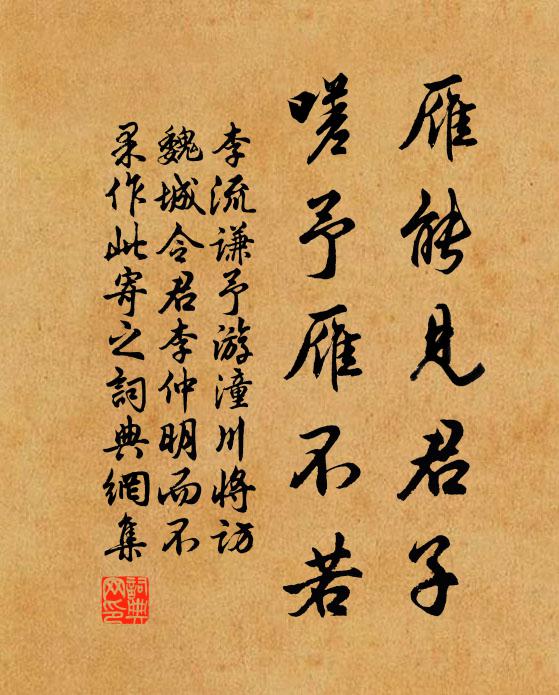 雁能見君子
嗟予雁不若
李流謙予游潼川將訪
魏城令君李仲明而不
果作此寄之詞典網集
詞典
网印